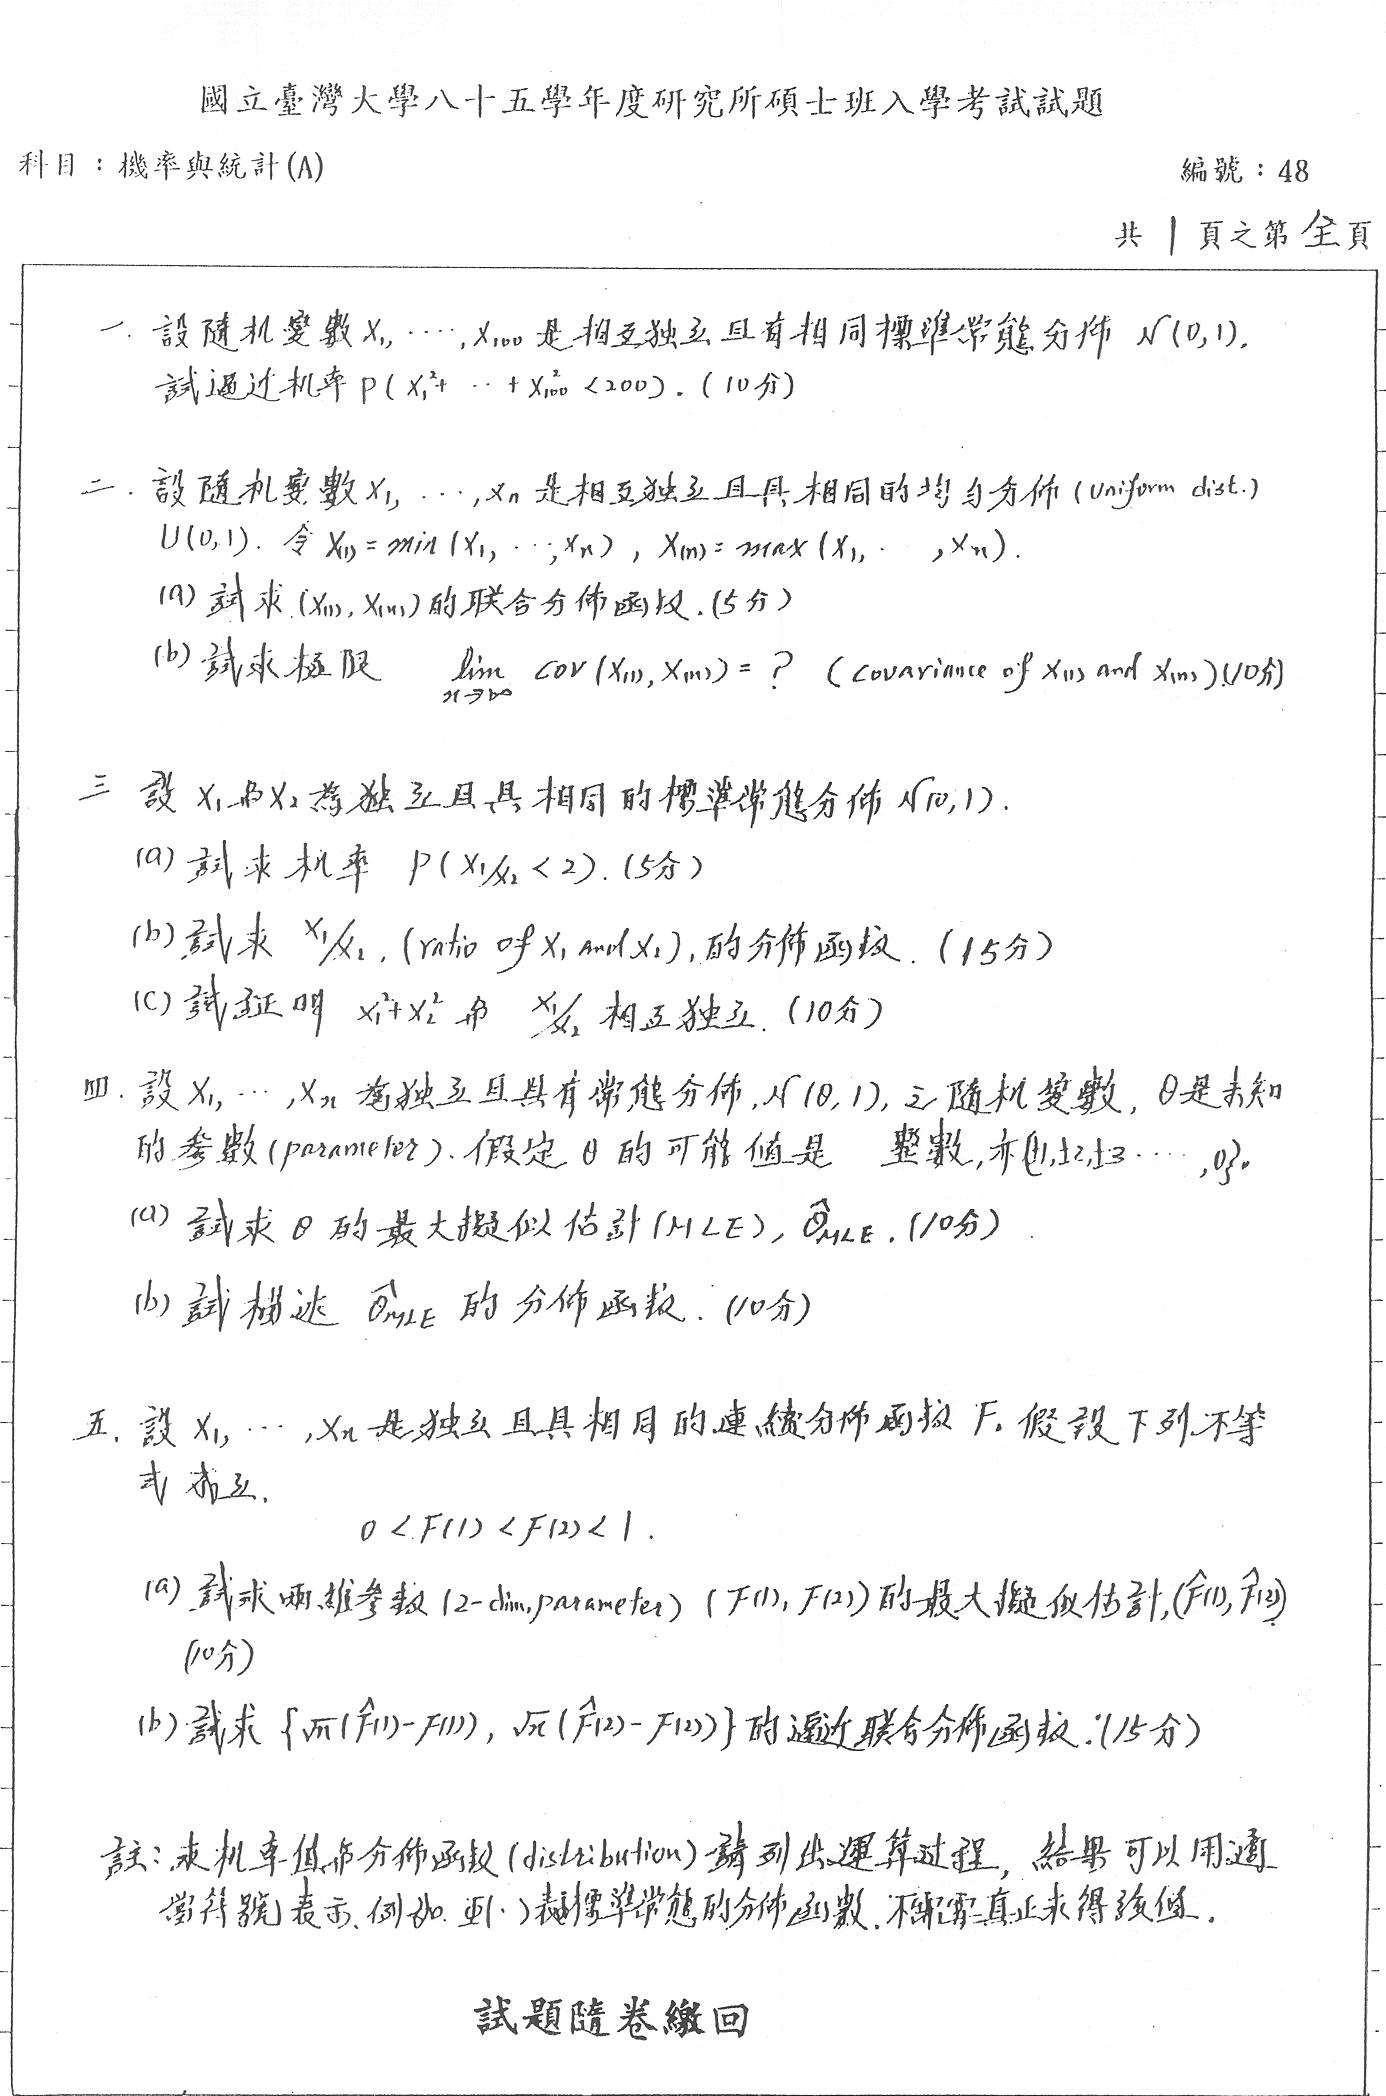 國立臺灣大學八十五學年度研究所碩士班入學考試試題
科目：機率與統計(A)
編號：48
共 1 頁之第 全 頁
一. 設隨机變數 X₁, ‥‥, X₁₀₀ 是相互独立且有相同標準常態分佈 N(0,1).
試逼近机率 P(X₁²+ ‥ + X₁₀₀² <200). (10分)
二. 設隨机變數 X₁, ‥‥, Xn 是相互独立且具相同的均勻分佈 (Uniform dist.)
U(0,1). 令 X(1) = min(X₁, ‥, Xn), X(n) = max(X₁, ‥, Xn).
(a) 試求 (X(1), X(n)) 的联合分佈函数. (5分)
(b) 試求極限 lim n→∞ COV(X(1), X(n)) = ? (covariance of X(1) and X(n)) (10分)
三 設 X₁ 与 X₂ 為独立且具相同的標準常態分佈 N(0,1).
(a) 試求机率 P(X₁/X₂ < 2). (5分)
(b) 試求 X₁/X₂, (ratio of X₁ and X₂), 的分佈函数. (15分)
(c) 試証明 X₁²+X₂² 与 X₁/X₂ 相互独立. (10分)
四. 設 X₁, ‥‥, Xn 為独立且具有常態分佈, N(θ,1), 之隨机變數, θ是未知
的參數(parameter). 假定 θ 的可能值是 整數, 亦{±1,±2,±3‥‥,0}.
(a) 試求 θ 的最大擬似估計(MLE), θ̂MLE. (10分)
(b) 試描述 θ̂MLE 的分佈函数. (10分)
五. 設 X₁, ‥‥, Xn 是独立且具相同的連續分佈函数 F. 假設下列不等
式成立.
0 < F(1) < F(2) < 1.
(a) 試求兩維參数 (2-dim, parameter) (F(1), F(2)) 的最大擬似估計, (F̂(1), F̂(2))
(10分)
(b) 試求 {√n(F̂(1)-F(1)), √n(F̂(2)-F(2))} 的逼近联合分佈函数. (15分)
註: 求机率值与分佈函数(distribution) 請列出運算过程, 結果可以用適
當符號表示. 例如. Φ(·)表標準常態的分佈函數. 不需真正求得該值.
試題隨卷繳回